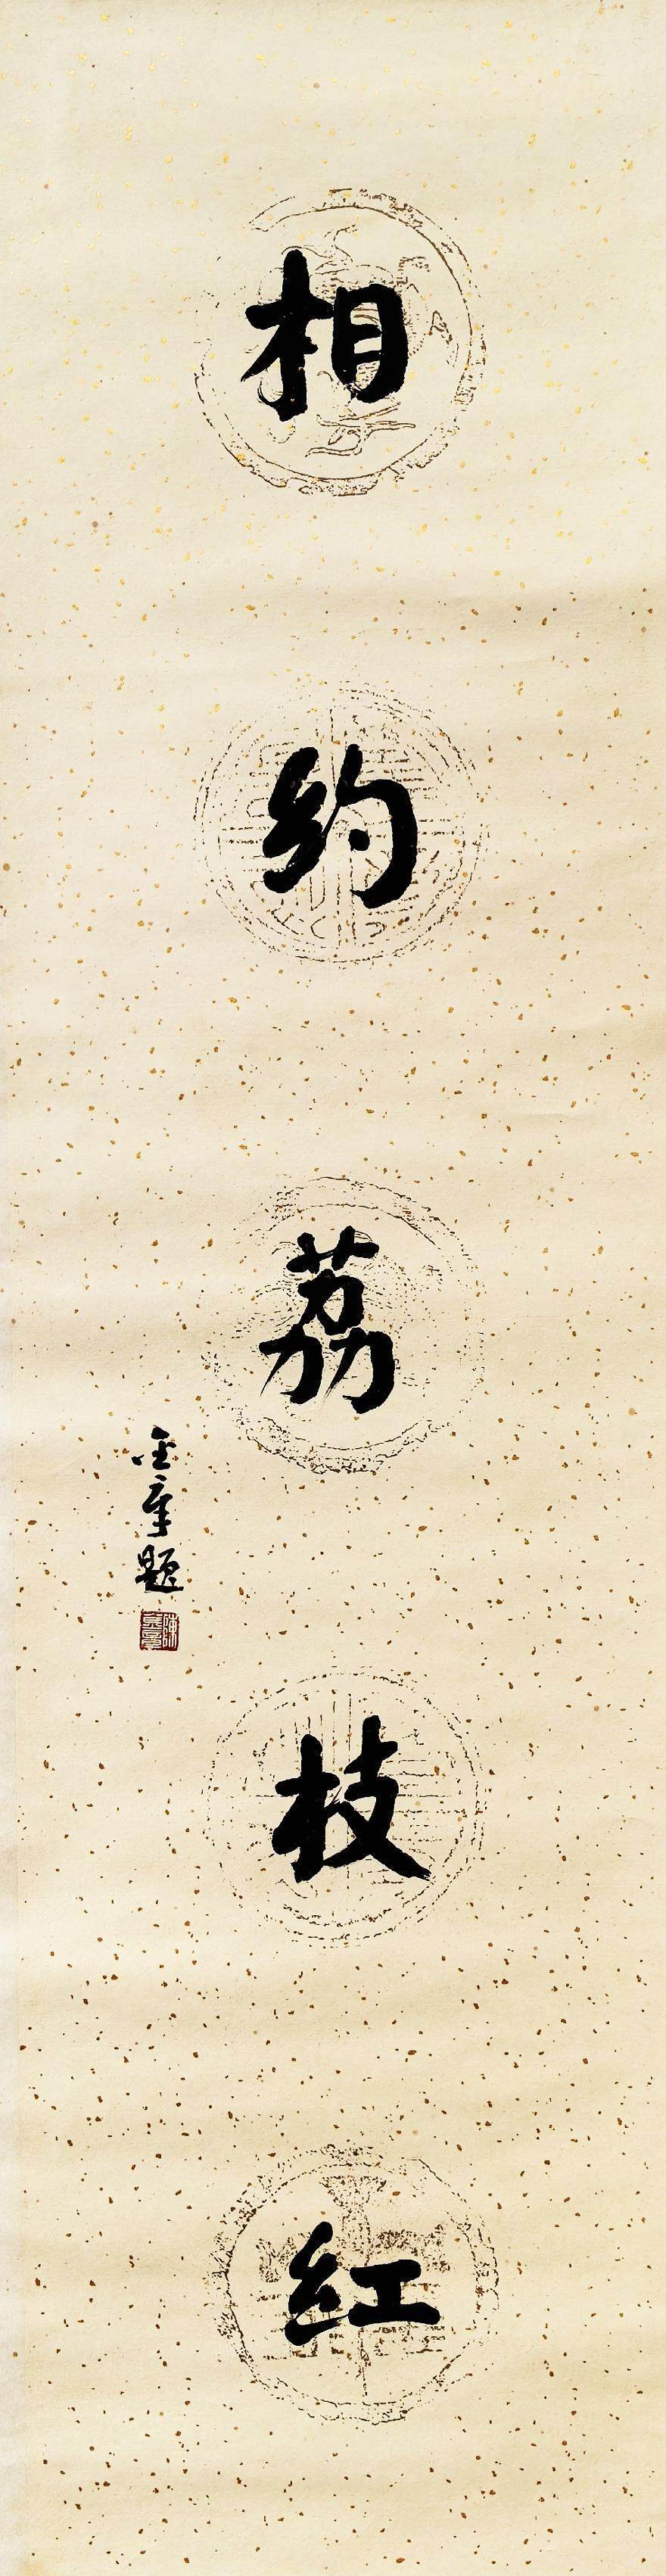 相约荔枝红
金章题